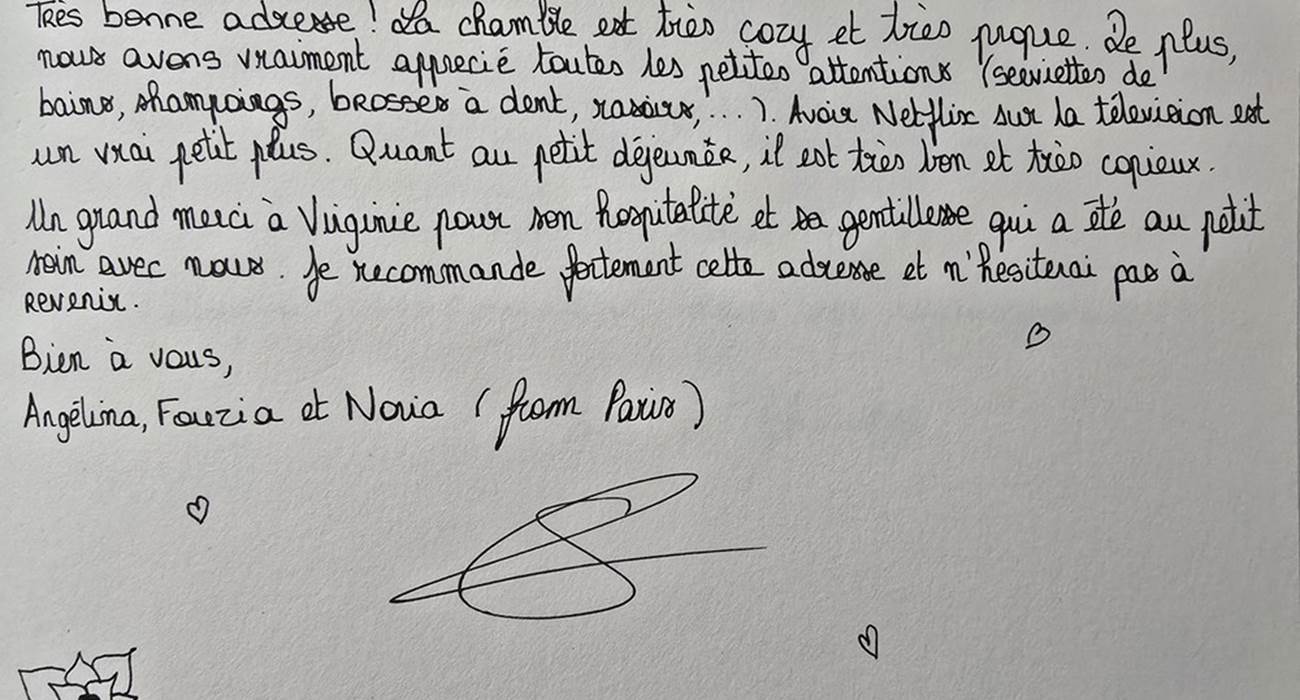 Très bonne adresse ! La chambre est très cozy et très propre. De plus,
nous avons vraiment apprecié toutes les petites attentions (serviettes de
bains, shampoings, brosses à dent, rasoirs, ... ). Avoir Netflix sur la télévision est
un vrai petit plus. Quant au petit déjeunêr, il est très bon et très copieux.
Un grand merci à Virginie pour son hospitalité et sa gentillesse qui a été au petit
soin avec nous. Je recommande fortement cette adresse et n'hésiterai pas à
revenir.
Bien à vous,
Angélina, Fouzia et Noria (from Paris)